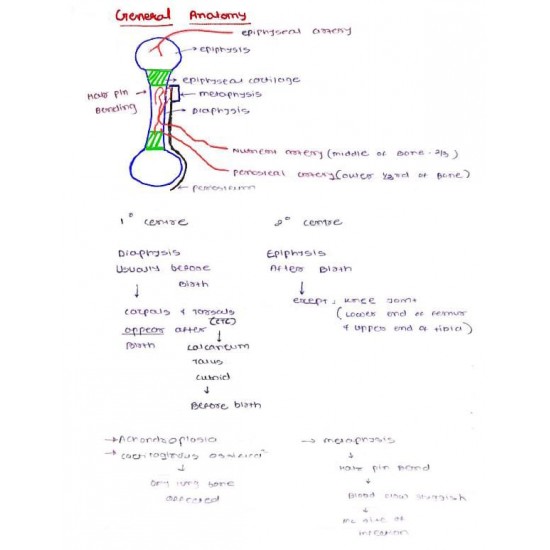 General Anatomy
epiphyseal artery
epiphysis
epiphyseal cartilage
Hair pin
Bending
metaphysis
Diaphysis
Nutrient artery (middle of Bone - 2/3)
Periosteal artery (outer 1/3rd of Bone)
Periosteum
1° centre
2° centre
Diaphysis
Usually before
Birth
Epiphysis
After Birth
carpals & Tarsals
(CTC)
appear after
Birth
except : knee joint
(Lower end of femur
& upper end of tibia)
calcaneum
Talus
cuboid
Before birth
→ Achondroplasia
→ cartilaginous
only long bone
affected
→ metaphysis
Hair pin Bend
Blood flow sluggish
mc site of
infection